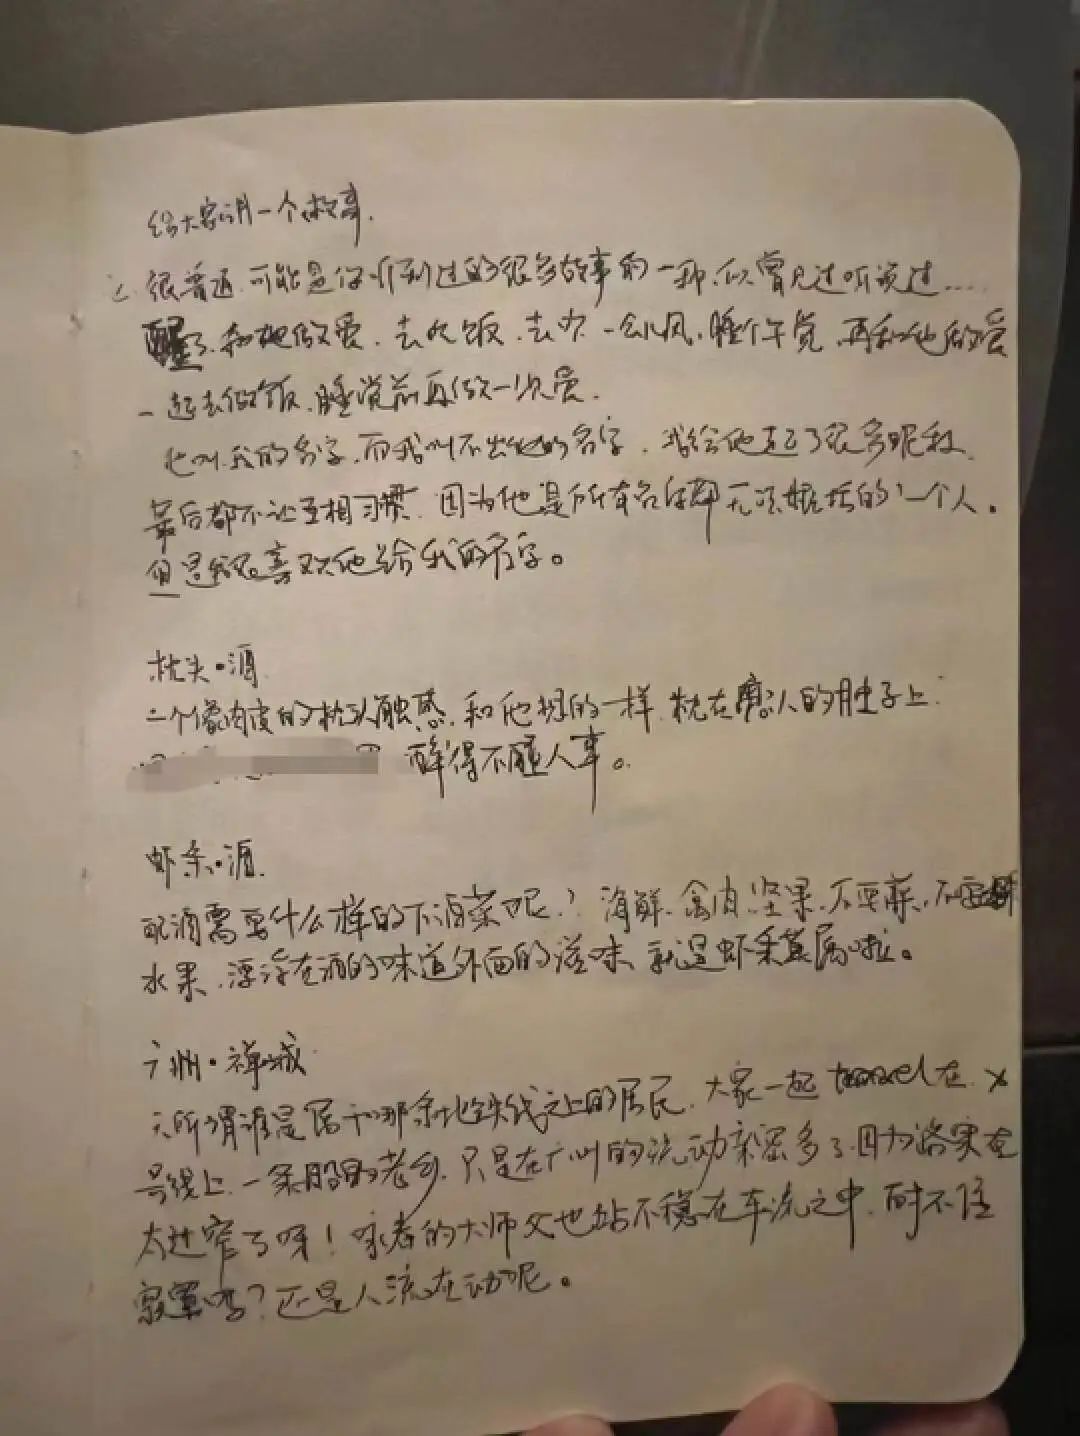 给大家讲一个故事.
很普通,可能是你听到过的很多故事的一种,似曾见过听说过……
醒了,和他做爱,去吃饭,去 一会儿风,睡个午觉,再和他做爱
一起去做饭,睡觉前再做一次爱.
他叫我的名字,而我叫不出他的名字,我给他起了很多昵称
最后都不让互相习惯,因为他是所有名词都无法概括的一个人。
但是我很喜欢他给我的名字。
枕头·酒
一个像肉皮的枕头触感,和他想的一样,枕在 人的肚子上:
醉得不醒人事。
虾条·酒
配酒需要什么样的下酒菜呢?海鲜,禽肉,坚果,不要蔬,不要
水果,漂浮在酒的味道外面的滋味,就是虾条莫属啦。
广州·禅城
无所谓谁是属于哪条地铁线之上的居民,大家一起travel在x
号线上,一条 的老乡,只是在广州的流动亲密多了,因为路实在
太过窄了呀! 的大师父也站不稳在车流之中,耐不住
寂寞吗?还是人流在动呢。